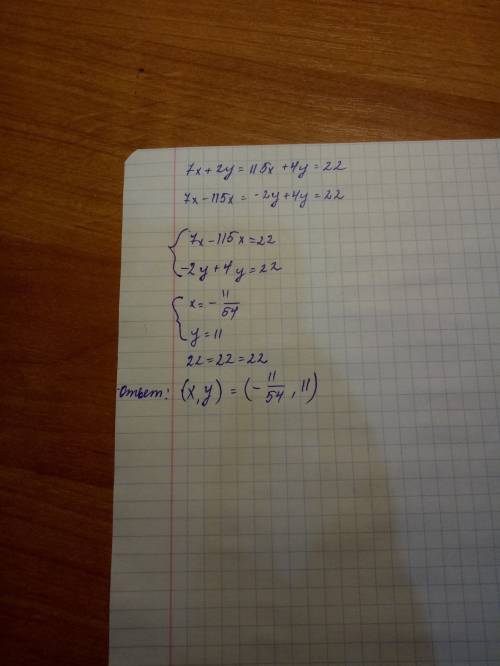 7x+2y=115x+4y=22
7x-115x=-2y+4y=22
7x-115x=22
-2y+4y=22
x=-11/54
y=11
22=22=22
Ответ: (x,y)=(-11/54, 11)